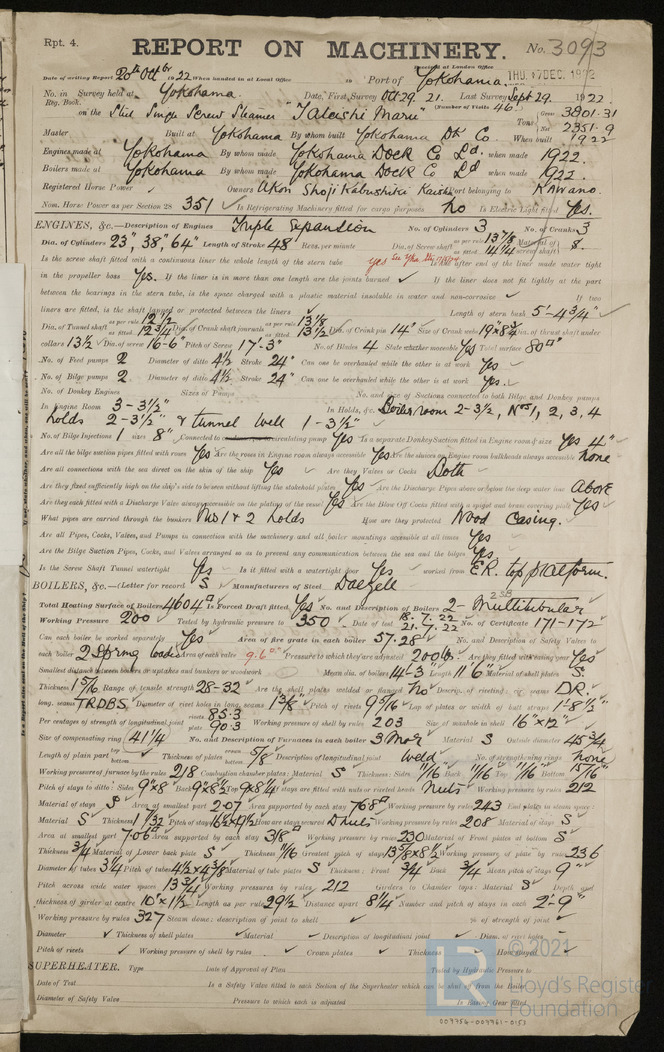 Rpt. 4.
REPORT ON MACHINERY.
No. 3093
Received at London Office
THU. 17 DEC. 1922
Date of writing Report 20th Octbr 1922 When handed in at Local Office Port of Yokohama
No. in Survey held at Yokohama Date, First Survey Oct 29. 21. Last Survey Sept 29. 1922.
Reg. Book. (Number of Visits 46)
on the Steel Single Screw Steamer
Tons Gross 3801.31
Net 2351.9
Master Built at Yokohama By whom built Yokohama Dk Co When built 1922
Engines made at Yokohama By whom made Yokohama Dock Co Ld. when made 1922.
Boilers made at Yokohama By whom made Yokohama Dock Co Ld when made 1922.
Registered Horse Power Owners Port belonging to
Nom. Horse Power as per Section 28 351 Is Refrigerating Machinery fitted for cargo purposes No Is Electric Light fitted Yes.
ENGINES, &c.—Description of Engines Triple Expansion No. of Cylinders 3 No. of Cranks 3
Dia. of Cylinders 23", 38", 64" Length of Stroke 48" Revs. per minute Dia. of Screw shaft as per rule 13 7/8 as fitted 14 1/4 Material of screw shaft S.
Is the screw shaft fitted with a continuous liner the whole length of the stern tube yes Is the after end of the liner made water tight
in the propeller boss Yes. If the liner is in more than one length are the joints burned If the liner does not fit tightly at the part
between the bearings in the stern tube, is the space charged with a plastic material insoluble in water and non-corrosive If two
liners are fitted, is the shaft lapped or protected between the liners Length of stern bush 5'-4 3/4"
Dia. of Tunnel shaft as per rule 12 1/2 as fitted 12 3/4 Dia. of Crank shaft journals as per rule 13 1/8 as fitted 13 1/2 Dia. of Crank pin 14" Size of Crank webs 19 x 8 3/4 Dia. of thrust shaft under
collars 13 1/2 Dia. of screw 16-6" Pitch of Screw 17'-3" No. of Blades 4 State whether moveable Yes Total surface 80
No. of Feed pumps 2 Diameter of ditto 4 1/2 Stroke 24" Can one be overhauled while the other is at work Yes
No. of Bilge pumps 2 Diameter of ditto 4 1/2 Stroke 24" Can one be overhauled while the other is at work Yes.
No. of Donkey Engines Sizes of Pumps No. and size of Suctions connected to both Bilge and Donkey pumps
In Engine Room 3 - 3 1/2" In Holds, &c. Boiler room 2 - 3 1/2, Nos 1, 2, 3, 4
holds 2 - 3 1/2" & tunnel well 1 - 3 1/2"
No. of Bilge Injections 1 sizes 8" Connected to circulating pump Yes Is a separate Donkey Suction fitted in Engine room & size Yes 4"
Are all the bilge suction pipes fitted with roses Yes Are the roses in Engine room always accessible Yes Are the sluices on Engine room bulkheads always accessible None
Are all connections with the sea direct on the skin of the ship Yes Are they Valves or Cocks Both
Are they fixed sufficiently high on the ship's side to be seen without lifting the stokehold plates Yes Are the Discharge Pipes above or below the deep water line Above
Are they each fitted with a Discharge Valve always accessible on the plating of the vessel Yes Are the Blow Off Cocks fitted with a spigot and brass covering plate Yes
What pipes are carried through the bunkers No 1 & 2 holds How are they protected Wood Casing.
Are all Pipes, Cocks, Valves, and Pumps in connection with the machinery and all boiler mountings accessible at all times Yes
Are the Bilge Suction Pipes, Cocks, and Valves arranged so as to prevent any communication between the sea and the bilges Yes.
Is the Screw Shaft Tunnel watertight Yes Is it fitted with a watertight door Yes worked from E.R. top platform.
BOILERS, &c.—(Letter for record S) Manufacturers of Steel Dalzell
Total Heating Surface of Boilers 4604 Is Forced Draft fitted Yes No. and Description of Boilers 2 - Multitubular 2SB
Working Pressure 200 Tested by hydraulic pressure to 350 Date of test 18.7.22 21.7.22 No. of Certificate 171-172
Can each boiler be worked separately Yes Area of fire grate in each boiler 57.28 No. and Description of Safety Valves to
each boiler 2 Spring loaded Area of each valve 9.6 Pressure to which they are adjusted 200 lb. Are they fitted with easing gear Yes
Smallest distance between boilers or uptakes and bunkers or woodwork Mean dia. of boilers 14'-3" Length 11'6" Material of shell plates S.
Thickness 1 5/16 Range of tensile strength 28-32 Are the shell plates welded or flanged No Descrip. of riveting: cir. seams DR.
long. seams TRDBS Diameter of rivet holes in long. seams 1 3/8" Pitch of rivets 9 5/16 Lap of plates or width of butt straps 1'-8 1/2"
Per centages of strength of longitudinal joint rivets 85.3 plate 90.3 Working pressure of shell by rules 203 Size of manhole in shell 16" x 12"
Size of compensating ring 41 1/4 No. and Description of Furnaces in each boiler 3 Mor Material S Outside diameter 45 3/4
Length of plain part top bottom Thickness of plates crown bottom 5/8 Description of longitudinal joint Weld No. of strengthening rings None
Working pressure of furnace by the rules 218 Combustion chamber plates: Material S Thickness: Sides 11/16 Back 11/16 Top 11/16 Bottom 15/16
Pitch of stays to ditto: Sides 9 x 8 Back If stays are fitted with nuts or riveted heads Nuts Working pressure by rules 212
Material of stays S Area at smallest part 2.07 Area supported by each stay 76.8 Working pressure by rules 243 End plates in steam space:
Material S Thickness 1 7/32 Pitch of stays How are stays secured D Nuts Working pressure by rules 208 Material of stays S
Area at smallest part 7.06 Area supported by each stay 318 Working pressure by rules 230 Material of Front plates at bottom S
Thickness 3/4 Material of Lower back plate S Thickness 11/16 Greatest pitch of stays 13 5/8 x 8 1/2 Working pressure of plate by rules 236
Diameter of tubes 3 1/4 Pitch of tubes 4 1/2 x 4 3/8 Material of tube plates S Thickness: Front 3/4 Back 3/4 Mean pitch of stays 9"
Pitch across wide water spaces 13 3/4 Working pressures by rules 212 Girders to Chamber tops: Material S Depth and
thickness of girder at centre 10" x 1 1/2 Length as per rule 29 1/2 Distance apart 8 1/4 Number and pitch of stays in each 2 - 9"
Working pressure by rules 327 Steam dome: description of joint to shell % of strength of joint
Diameter Thickness of shell plates Material Description of longitudinal joint Diam. of rivet holes
Pitch of rivets Working pressure of shell by rules Crown plates Thickness How stayed
SUPERHEATER. Type Date of Approval of Plan Tested by Hydraulic Pressure to
Date of Test Is a Safety Valve fitted to each Section of the Superheater which can be shut off from the Boiler
Diameter of Safety Valve Pressure to which each is adjusted Is Easing Gear fitted
© 2021
Lloyd's Register
Foundation
LR
009754-009761-0153